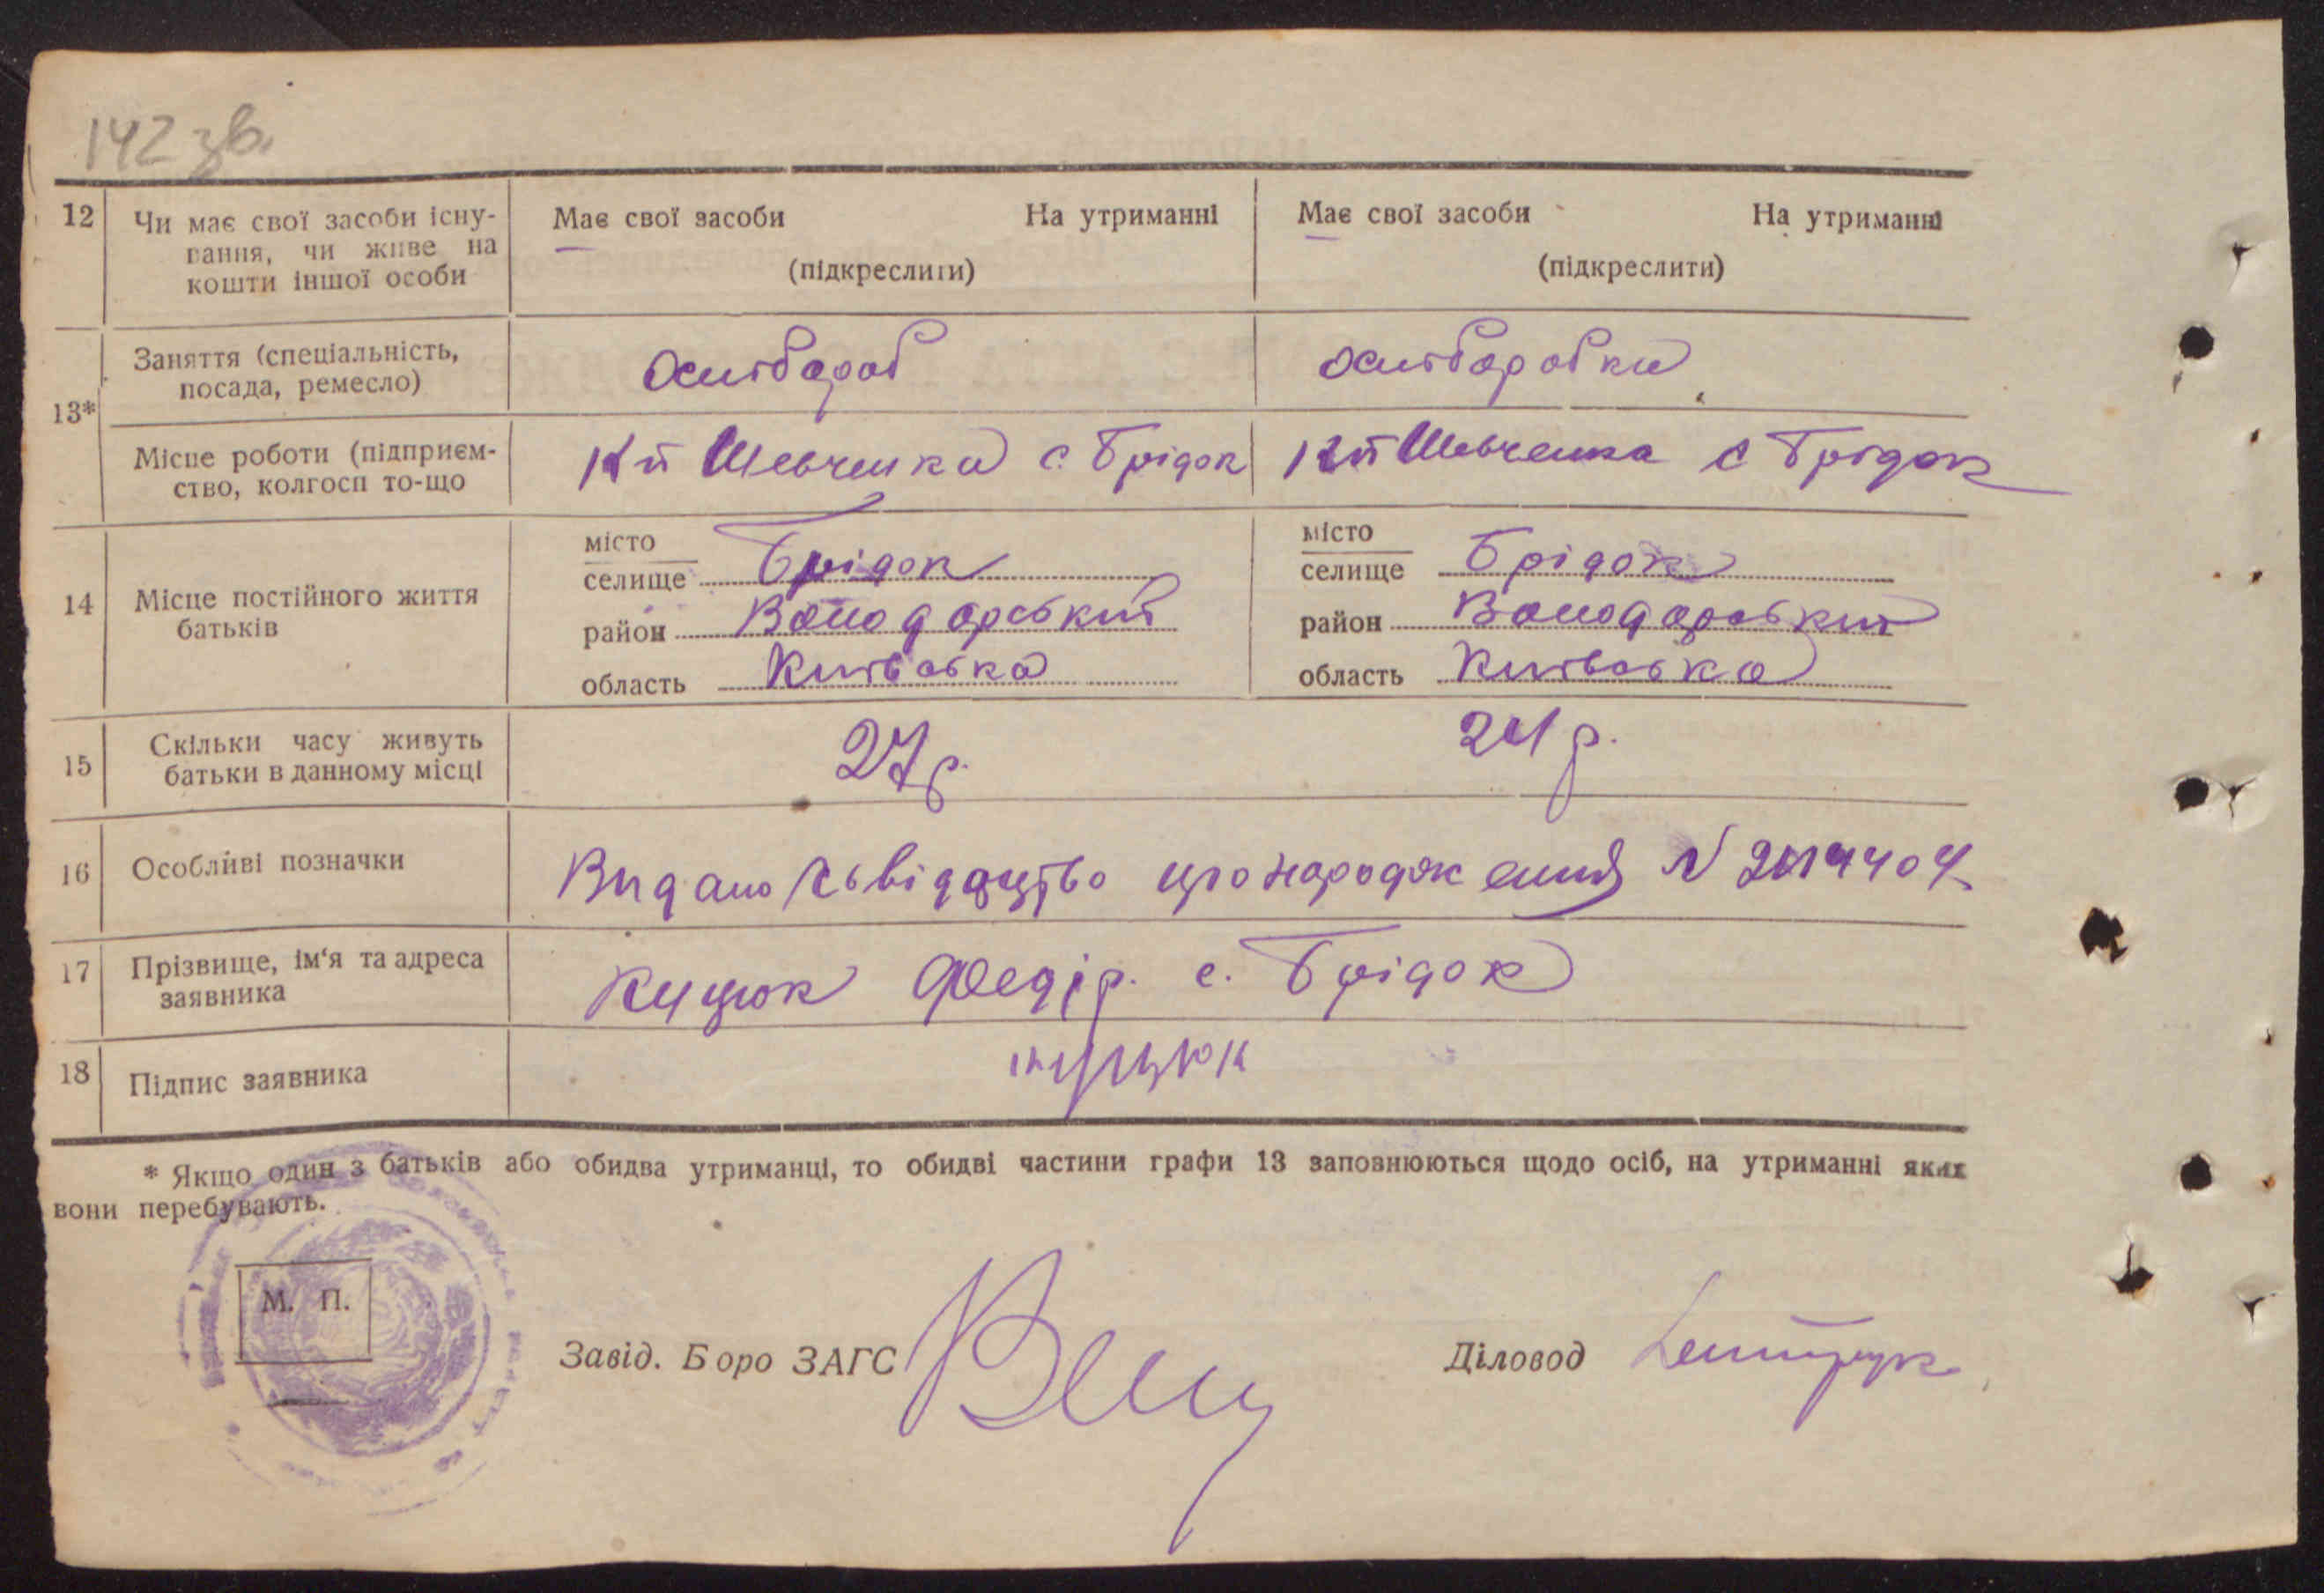 142 зв.
12 Чи має свої засоби існу-
вання, чи живе на
кошти іншої особи
Має свої засоби На утриманні
(підкреслити)
Має свої засоби На утриманні
(підкреслити)
13*
Заняття (спеціальність,
посада, ремесло)
хлібороб
хліборобка
Місце роботи (підприєм-
ство, колгосп то-що
Шевченка с. Брідок
Шевченка с Брідок
14 Місце постійного життя
батьків
місто
селище Брідок
район Володарський
область Київська
місто
селище Брідок
район Володарський
область Київська
15 Скільки часу живуть
батьки в данному місці
27 р.
24 р.
16 Особливі позначки
Видано свідоцтво про народження N
17 Прізвище, ім'я та адреса
заявника
Куцюк Федір. с. Брідок
18 Підпис заявника
Куцюк
* Якщо один з батьків або обидва утриманці, то обидві частини графи 13 заповнюються щодо осіб, на утриманні яких
вони перебувають.
М. П.
Завід. Боро ЗАГС
Діловод